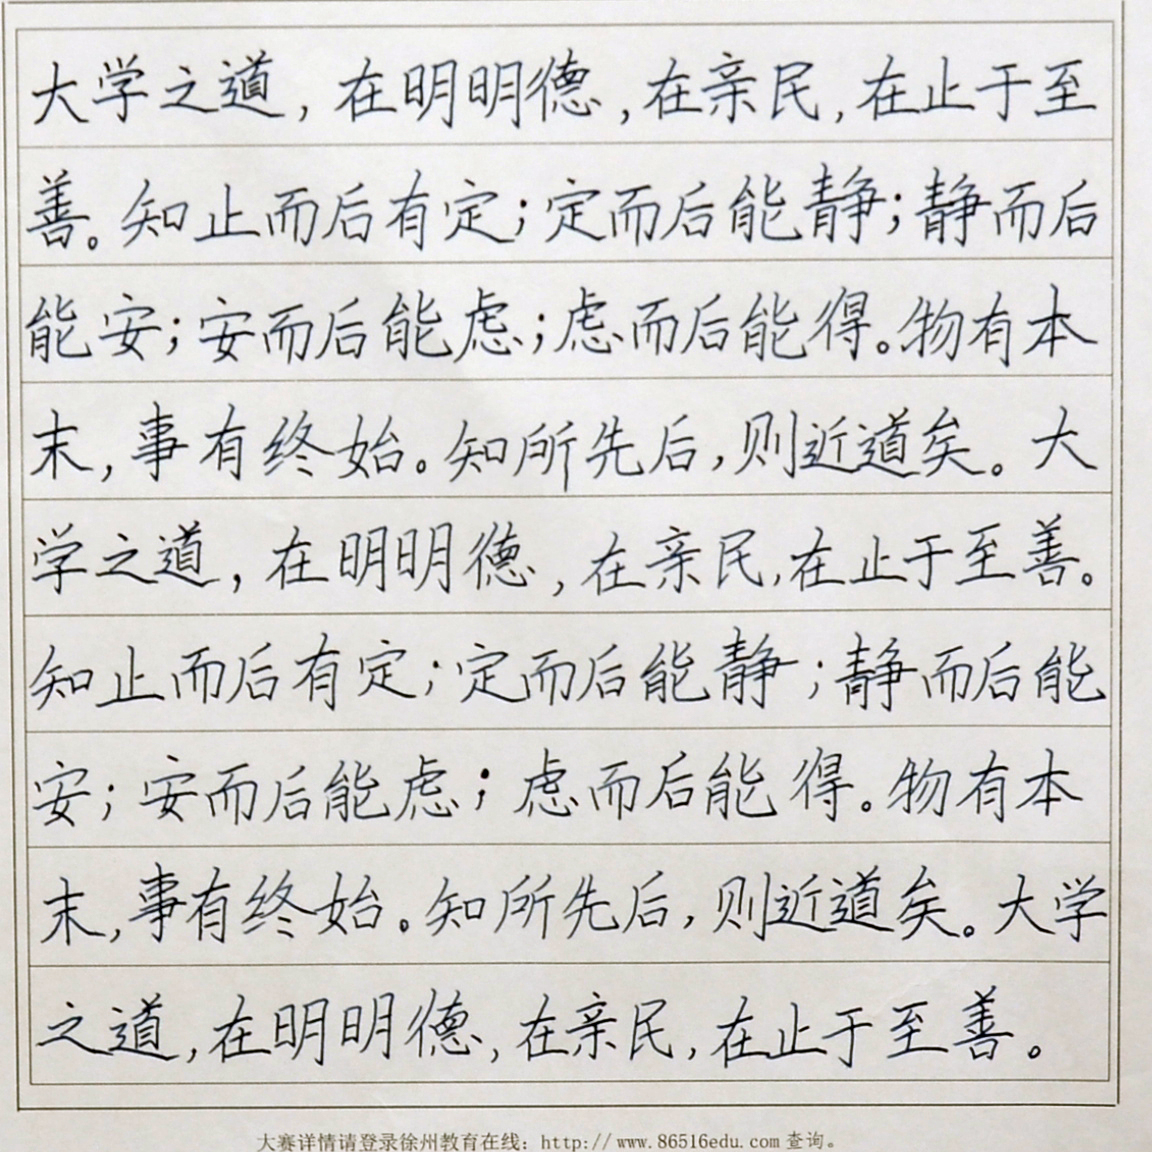 大学之道，在明明德，在亲民，在止于至
善。知止而后有定；定而后能静；静而后
能安；安而后能虑；虑而后能得。物有本
末，事有终始。知所先后，则近道矣。大
学之道，在明明德，在亲民，在止于至善。
知止而后有定；定而后能静；静而后能
安；安而后能虑；虑而后能得。物有本
末，事有终始。知所先后，则近道矣。大学
之道，在明明德，在亲民，在止于至善。
大赛详情请登录徐州教育在线：http://www.86516edu.com查询。